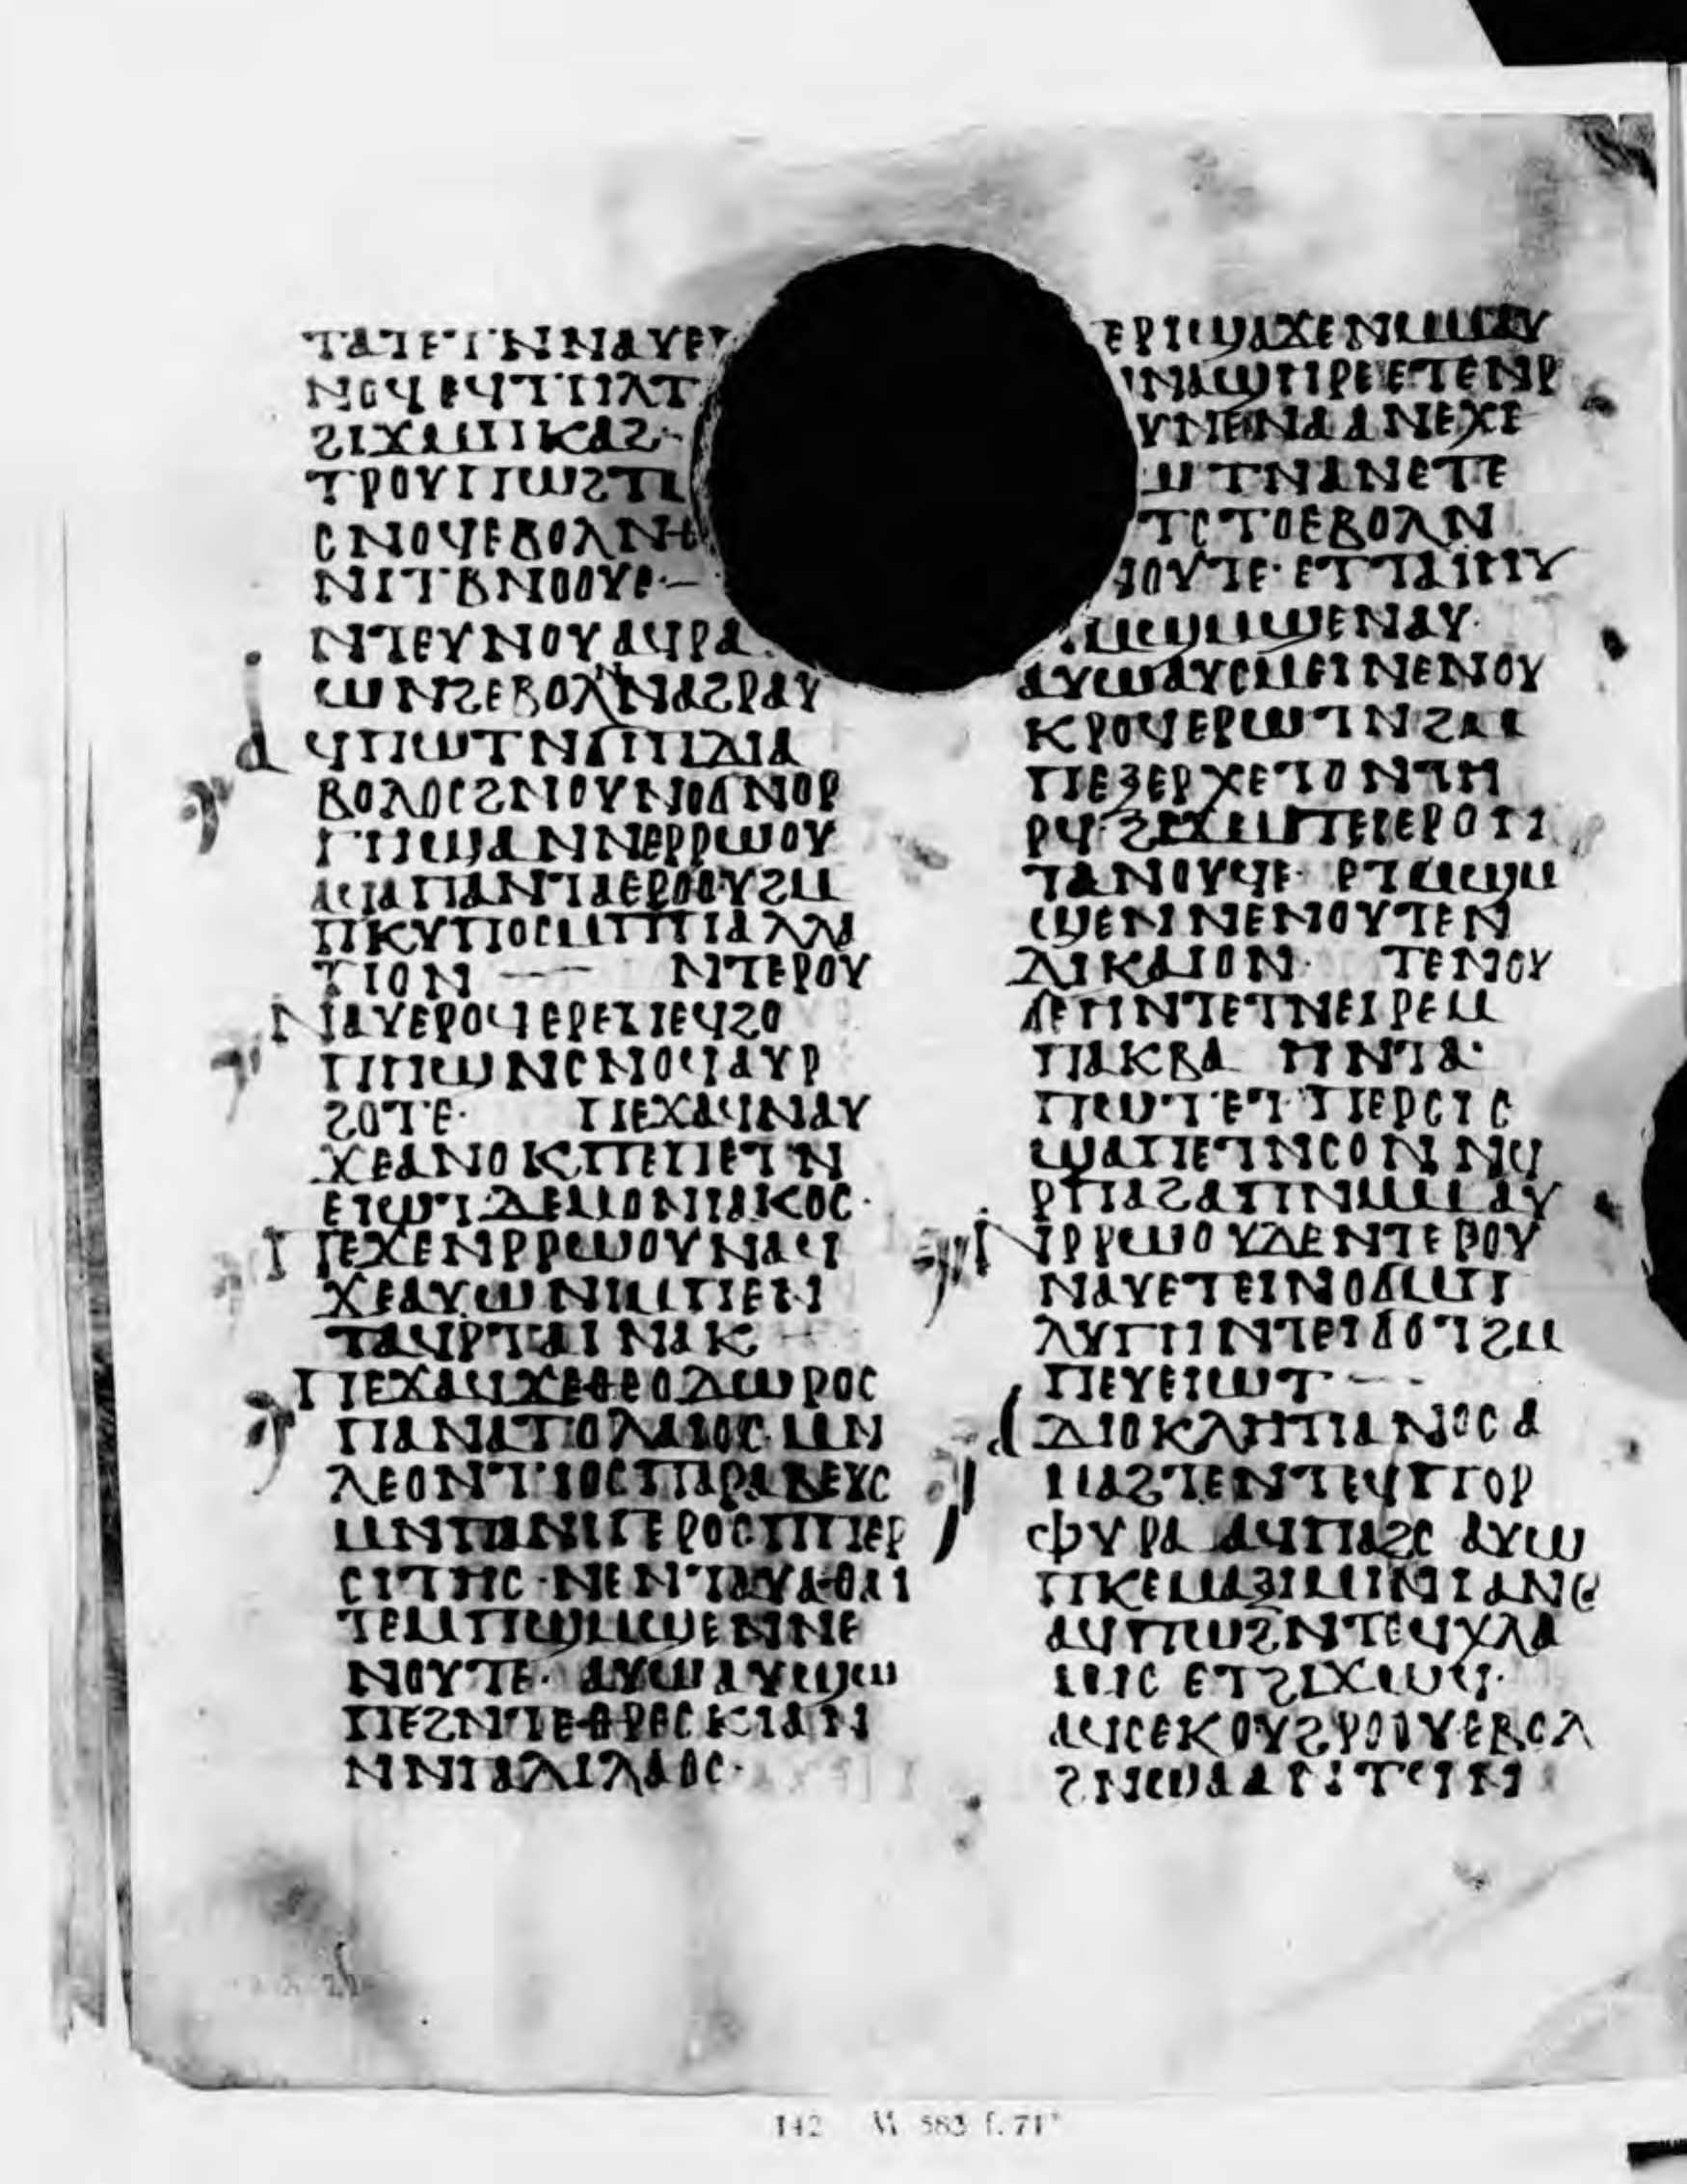 ⲧⲁⲓⲉⲓⲛⲛⲁⲩⲉ
ⲛⲟϥⲉϥⲧ
ϩⲓϫⲙⲡⲕⲁϩ·
ⲧⲣⲟⲩⲡⲱϩⲧ
ⲥⲛⲟϥⲉⲃⲟⲗⲛ
ⲛⲓⲧⲃⲛⲟⲟⲩⲉ·—
ⲛⲧⲉⲩⲛⲟⲩⲁϥⲣⲁ
ⲱⲛϩⲉⲃⲟⲗⲛⲛⲁϩⲣⲁⲩ
ⲁϥⲡⲱⲧⲛⲡⲇⲓⲁ
ⲃⲟⲗⲟⲥϩⲛⲟⲩⲛⲟϭⲛⲟⲣ
ⲅⲏϣⲁⲛⲛⲉⲣⲣⲱⲟⲩ
ⲁϥⲁⲡⲁⲛⲧⲁⲉⲣⲟⲟⲩϩⲙ
ⲡⲕⲩⲡⲟⲥⲙⲡⲡⲁⲗⲗⲁ
ⲧⲓⲟⲛ —— ⲛⲧⲉⲣⲟⲩ
ⲛⲁⲩⲉⲣⲟϥⲉⲣⲉⲡⲉϥϩⲟ
ⲡⲡⲱⲛⲥⲛⲟϥⲁⲩⲣ
ϩⲟⲧⲉ· ⲡⲉϫⲁϥⲛⲁⲩ
ϫⲉⲁⲛⲟⲕⲡⲉⲡⲉⲧⲛ
ⲉⲓⲱⲧ·ⲇⲉⲙⲟⲛⲓⲁⲕⲟⲥ·
ⲡⲉϫⲉⲛⲣⲣⲱⲟⲩⲛⲁϥ
ϫⲉⲁⲩⲱⲛⲓⲙⲡⲉⲛ
ⲧⲁϥⲣⲧⲁⲓⲛⲁⲕ
ⲡⲉϫⲁϥϫⲉⲑⲉⲟⲇⲱⲣⲟⲥ
ⲡⲁⲛⲁⲧⲟⲗⲁⲓⲟⲥ·ⲙⲛ
ⲗⲉⲟⲛⲧⲓⲟⲥⲡⲁⲣⲁⲃⲉⲩⲥ
ⲙⲛⲡⲁⲛⲓⲕⲉⲣⲟⲥⲡⲡⲉⲣ
ⲥⲓⲧⲏⲥ·ⲛⲉⲛⲧⲁⲩⲁⲑⲉ
ⲧⲉⲙⲡϣⲙϣⲉⲛⲛⲉ
ⲛⲟⲩⲧⲉ· ⲁⲩⲱⲁⲩϣⲱ
ⲡⲉϩⲛⲧⲉⲑⲣⲉⲥⲕⲓⲁⲛ
ⲛⲛⲅⲁⲗⲓⲗⲁⲟⲥ·
ⲉⲣⲓϣⲁϫⲉⲛⲙⲙⲁⲩ
ⲛⲁϣⲏⲣⲉⲉⲧⲉⲛⲣ
ⲩⲛⲉⲛⲁⲁⲛⲉϫⲉ
ⲱⲧⲛⲁⲛⲉⲧⲉ
ⲧⲥⲧⲟⲉⲃⲟⲗⲛ
ⲛⲟⲩⲧⲉ·ⲉⲧⲧⲁⲓⲏⲩ
ⲙϣⲙϣⲉⲛⲁⲩ·
ⲁⲩⲱⲁⲩⲥⲙⲉⲓⲛⲉⲛⲟⲩ
ⲕⲣⲟϥⲉⲣⲱⲧⲛϩⲙ
ⲡⲉⲝⲉⲣϫⲉⲧⲟⲛⲧⲏ
ⲣϥ· ϩⲣⲁⲓⲉⲙⲡⲉⲓⲉⲣⲟⲧⲓ
ⲧⲁⲛⲟⲩϥⲉ· ⲣⲧⲙϣⲙ
ϣⲉⲛⲛⲉⲛⲟⲩⲧⲉⲛ
ⲇⲓⲕⲁⲓⲟⲛ· ⲧⲉⲛⲟⲩ
ϭⲉⲏⲛⲧⲉⲧⲛⲉⲓⲣⲉⲙ
ⲡⲁⲕⲃⲁ ⲏⲛⲧⲁ·
ⲡⲱⲧⲉⲧⲡⲉⲣⲥⲓⲥ
ϣⲁⲡⲉⲧⲛⲥⲟⲛⲛϥ
ⲣⲡⲁϩⲁⲡⲛⲙⲙⲁⲩ
ⲛⲣⲣⲱⲟⲩⲇⲉⲛⲧⲉⲣⲟⲩ
ⲛⲁⲩⲉⲧⲉⲓⲛⲟϭⲙⲙⲛⲧ
ⲗⲩⲡⲏⲛⲧⲉⲓϭⲟⲧϩⲙ
ⲡⲉⲩⲉⲓⲱⲧ—-
ⲁⲇⲓⲟⲕⲗⲏⲧⲓⲁⲛⲟⲥⲁ
ⲙⲁϩⲧⲉⲛⲧⲉϥⲡⲟⲣ
ⲫⲩⲣⲁ ⲁϥⲡⲁϩⲥ ⲁⲩⲱ
ⲡⲕⲉⲙⲁⲝⲓⲙⲓⲛⲓⲁⲛⲟ
ⲁϥⲡⲱϩⲛⲧⲉϥⲭⲗⲁ
ⲙⲓⲥ ⲉⲧϩⲓϫⲱϥ·
ⲁϥⲥⲉⲕⲟⲩϩⲣⲟⲟⲩⲉⲃⲟⲗ
142 M 583 f. 71ᵛ